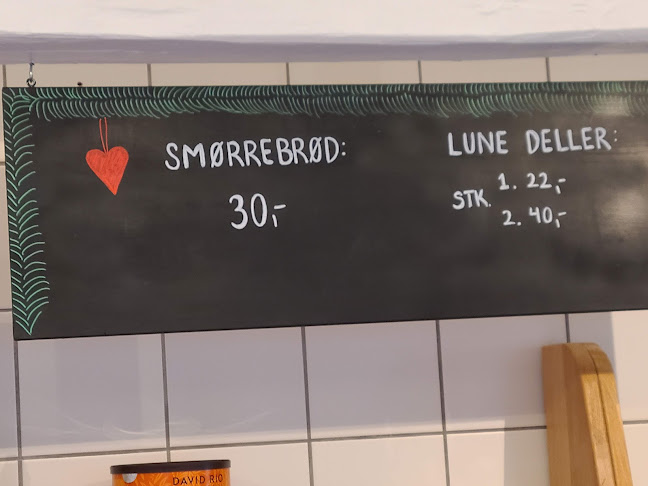 SMØRREBRØD:
30,-
LUNE DELLER:
STK. 1. 22,-
2. 40,-
DAVID RIO